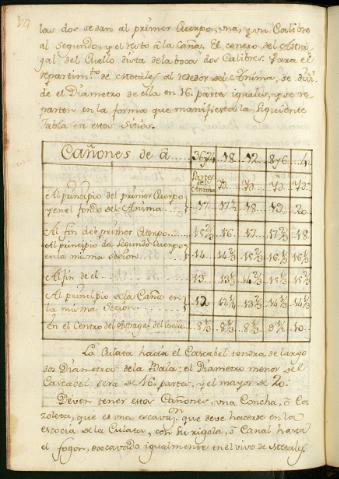 las dos se dan al primer Cuerpo, mas, y un Calibre
al Segundo, y el resto à la Caña. El centro del Astra-
gal del Cuello dista de la boca dos Calibres. Para el
repartim.to de metales al rededor del Anima, se divi-
de el Diametro de ella en 16. partes iguales, y se re-
parten en la forma que manifiesta la siguiente
Tabla en estos Sitios.
Cañones de à 36 y 24 18 12 8 y 6 4
Partes de Anima
Al principio del primer Cuerpo
y en el fondo del Anima 17 17½ 18 19 20
Al fin del primer Cuerpo 15 16 17 18
Al principio del Segundo Cuerpo
en la misma seccion 14
Al fin de el 13
Al principio de la Caña en
la misma Seccion 12
En el Centro del Astragal del Cuello
La Culata hasta el Cascabel tendra de largo
dos Diametros de la Bala: el Diametro menor del
Cascabel sera de 16. partes, y el mayor de 20.
Deven tener estos Cañones, una Concha, ò Ca-
zoleta, que es una escava.on, que deve hacerse en la
escocia de la Culata, con su rigola, ò Canal hasta
el fogon, excavado igualmente en el vivo de metales